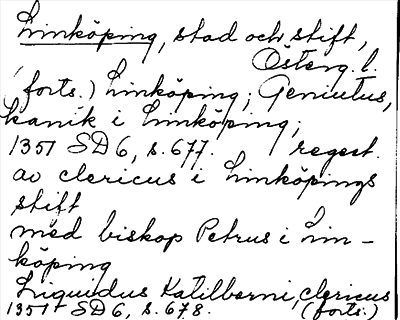 Linköping, stad och stift,
Österg. l.
(forts.) Linköping; Geniutus,
kanik i Linköping;
1351 SD6, s. 677. regest.
av clericus i Linköpings
stift
med biskop Petrus i Lin-
köping
Liquidus Katilberni, clericus
1351 SD6, s. 678. (forts.)